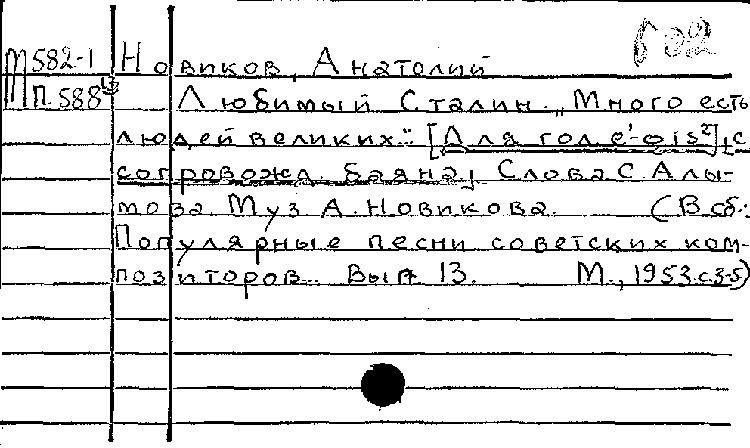 М582-1 Новиков, Анатолий
П.588 Любимый Сталин. „Много есть
людей великих". [Для гол. c¹-dis²] [с
сопровожд. баяна] Слова С. Алы-
мова. Муз А. Новикова. (В сб.:
Популярные песни советских ком-
позиторов. Вып 13. М., 1953. с. 3-5)